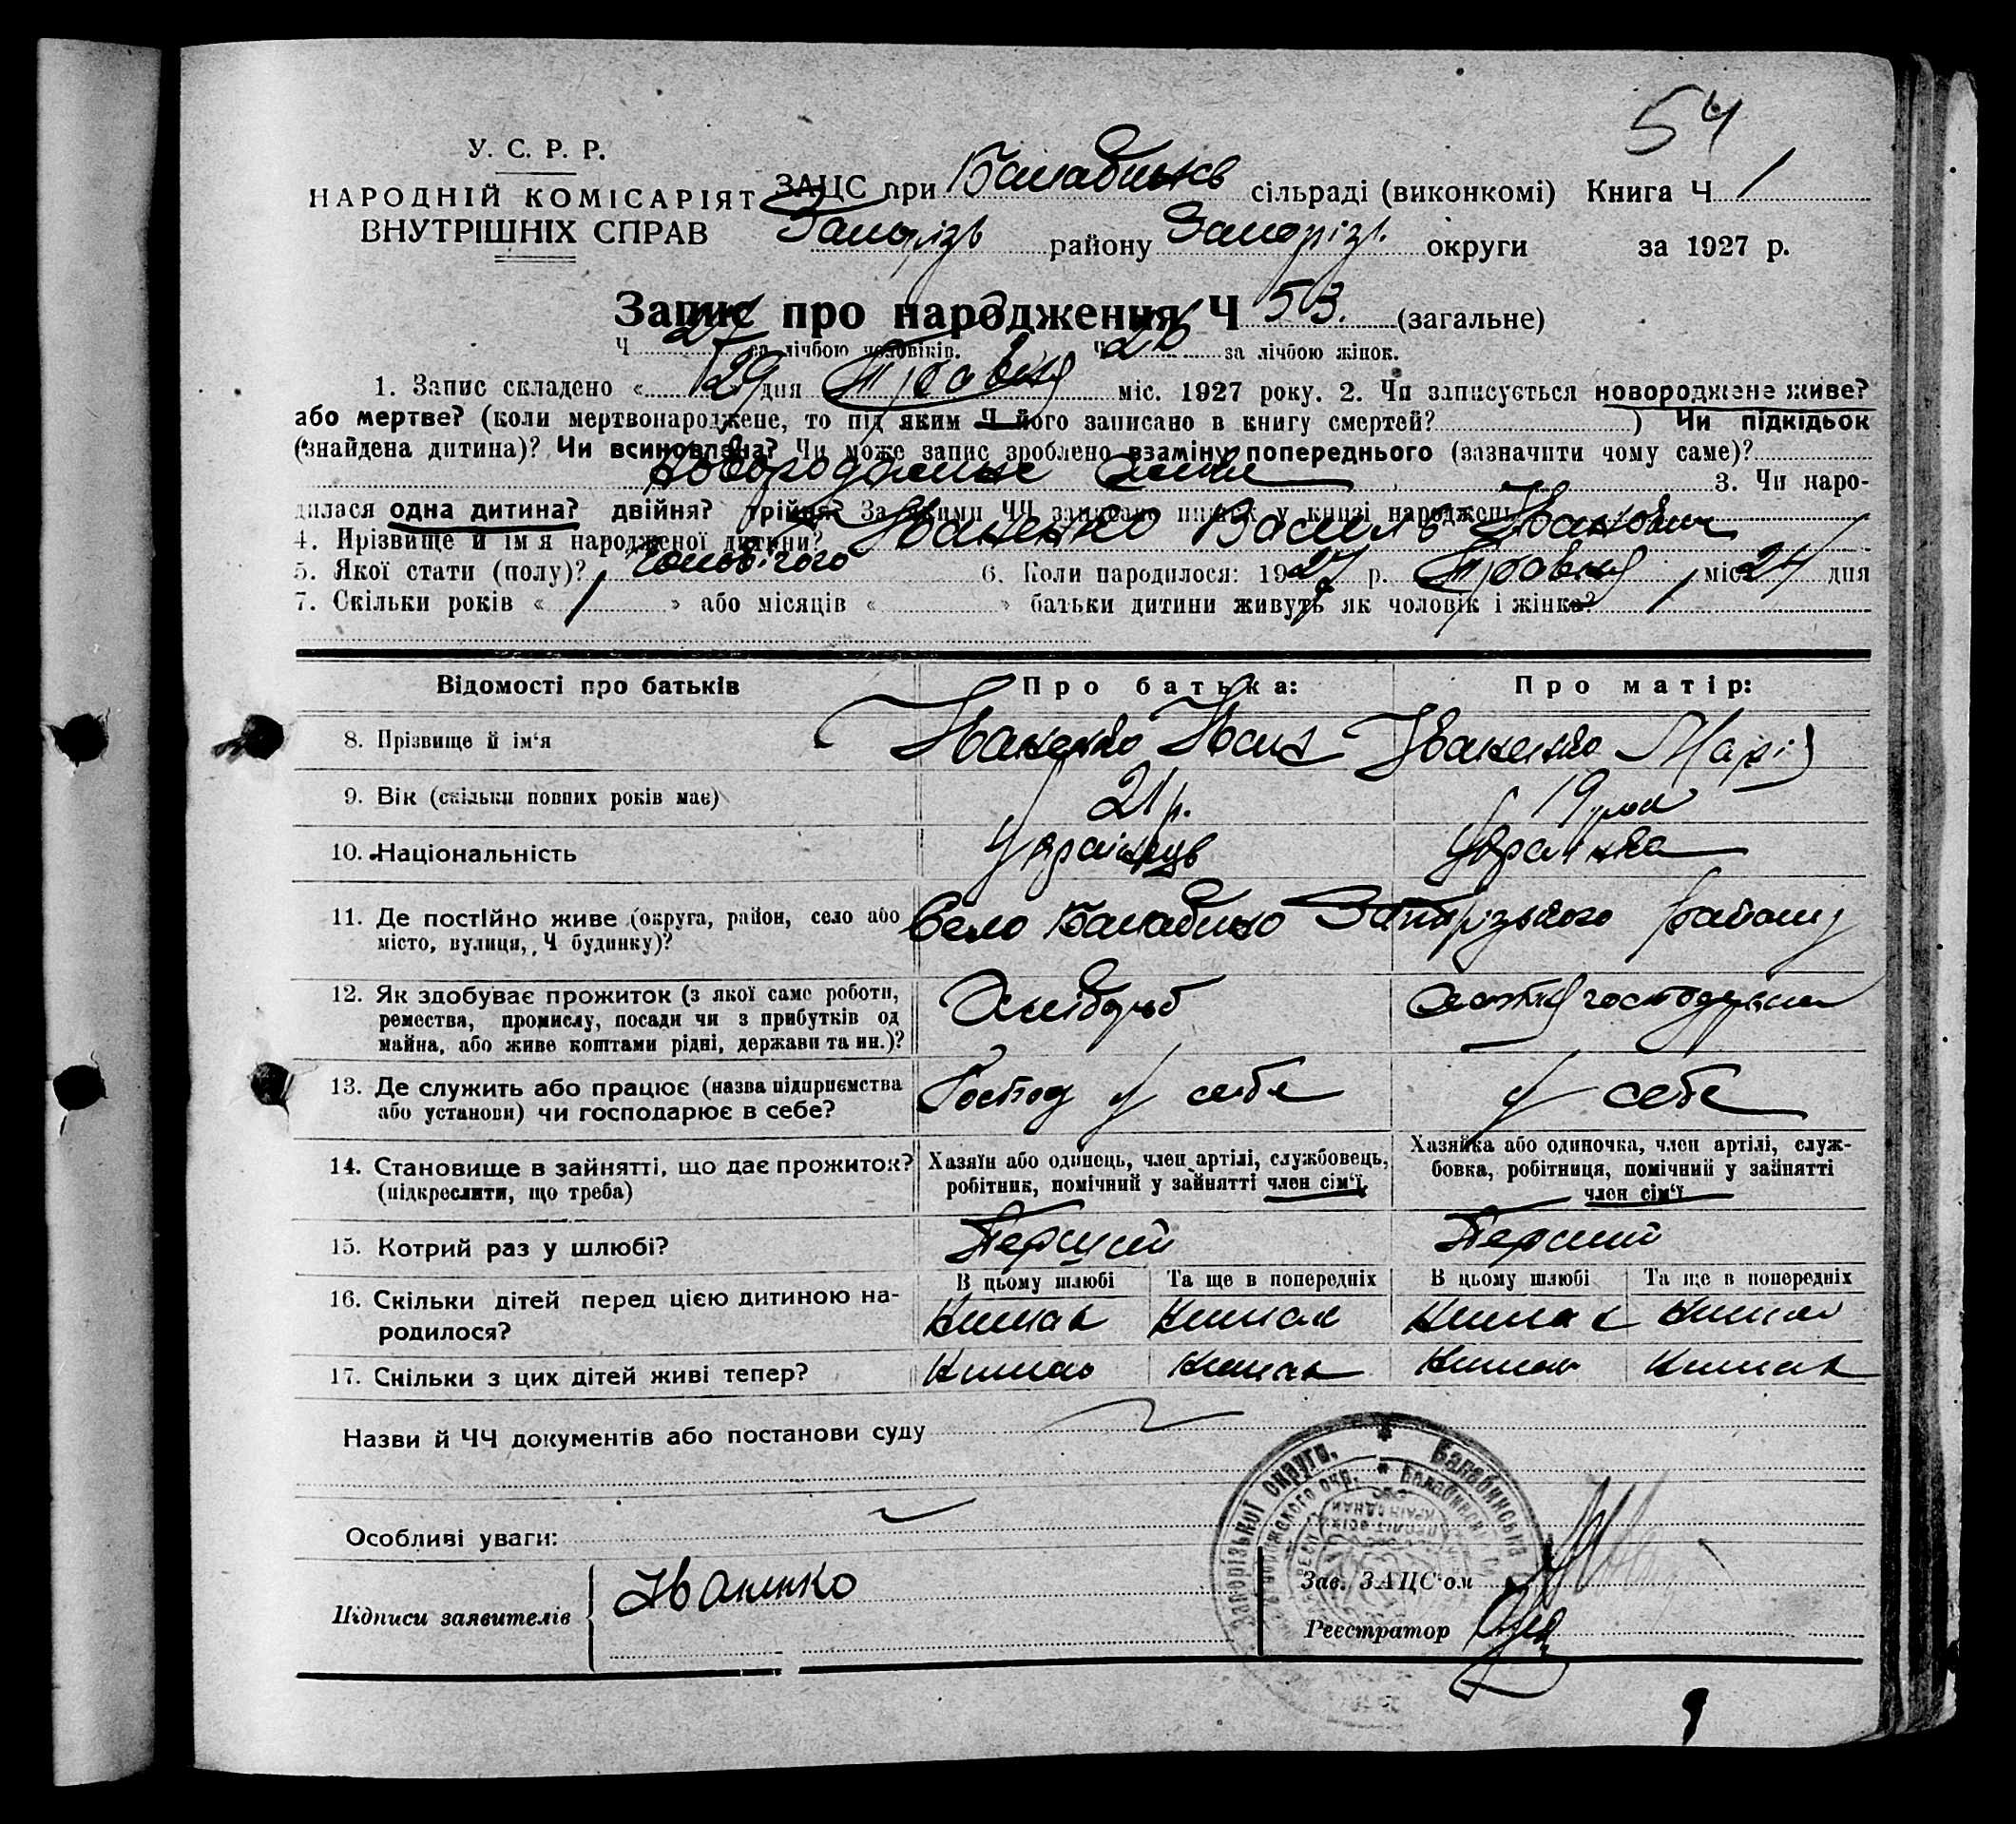 54
У. С. Р. Р.
НАРОДНІЙ КОМІСАРІЯТ
ВНУТРІШНІХ СПРАВ
ЗАЦС при Балабинськ сільраді (виконкомі) Книга Ч 1
Запоріз району Запоріз. округи за 1927 р.
Запис про народження Ч 53. (загальне)
Ч 27 за лічбою чоловіків. Ч 26 за лічбою жінок.
1. Запис складено « 29 дня Травня міс. 1927 року. 2. Чи записується новороджене живе?
або мертве? (коли мертвонароджене, то під яким Ч його записано в книгу смертей? ) Чи підкідьок
(знайдена дитина)? Чи всиновлена? Чи може запис зроблено взаміну попереднього (зазначити чому саме)?
новороджене живе 3. Чи наро-
дилася одна дитина? двійня? трійня? За якими ЧЧ записано инших у книзі народжень
4. Прізвище й ім'я народженої дитини? Іваненко Василь Іванович
5. Якої стати (полу)? чоловічого 6. Коли народилося: 1927 р. Травня міс 24 дня
7. Скільки років « 1 » або місяців « » батьки дитини живуть як чоловік і жінка?
Відомості про батьків Про батька: Про матір:
8. Прізвище й ім'я Іваненко Іван Іваненко Марія
9. Вік (скільки повних років має) 21 р. 19 рок
10. Національність Українець Українка
11. Де постійно живе (округа, район, село або Село Балабино Запорізького району
місто, вулиця, Ч будинку)?
12. Як здобуває прожиток (з якої саме роботи, Хлібороб господарка
ремества, промислу, посади чи з прибутків од
майна, або живе коштами рідні, держави та ин.)?
13. Де служить або працює (назва підприємства Господ у себе у себе
або установи) чи господарює в себе?
14. Становище в зайнятті, що дає прожиток? Хазяїн або одинець, член артілі, службовець, Хазяйка або одиночка, член артілі, служ-
(підкреслити, що треба) робітник, помічний у зайнятті член сім'ї бовка, робітниця, помічний у зайнятті
член сім'ї
15. Котрий раз у шлюбі? Перший Перший
В цьому шлюбі Та ще в попередніх В цьому шлюбі Та ще в попередніх
16. Скільки дітей перед цією дитиною на- Немає Немає Немає Немає
родилося?
17. Скільки з цих дітей живі тепер? Немає Немає Немає Немає
Назви й ЧЧ документів або постанови суду
Особливі уваги:
Підписи заявителів Іваненко
Зав. ЗАЦС'ом
Реєстратор
Запорізької округи. * Балабинська